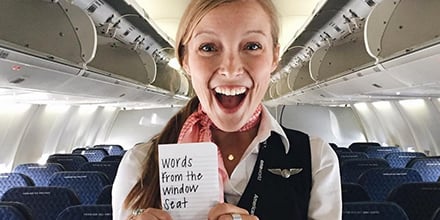 Words
from the
window
Seat